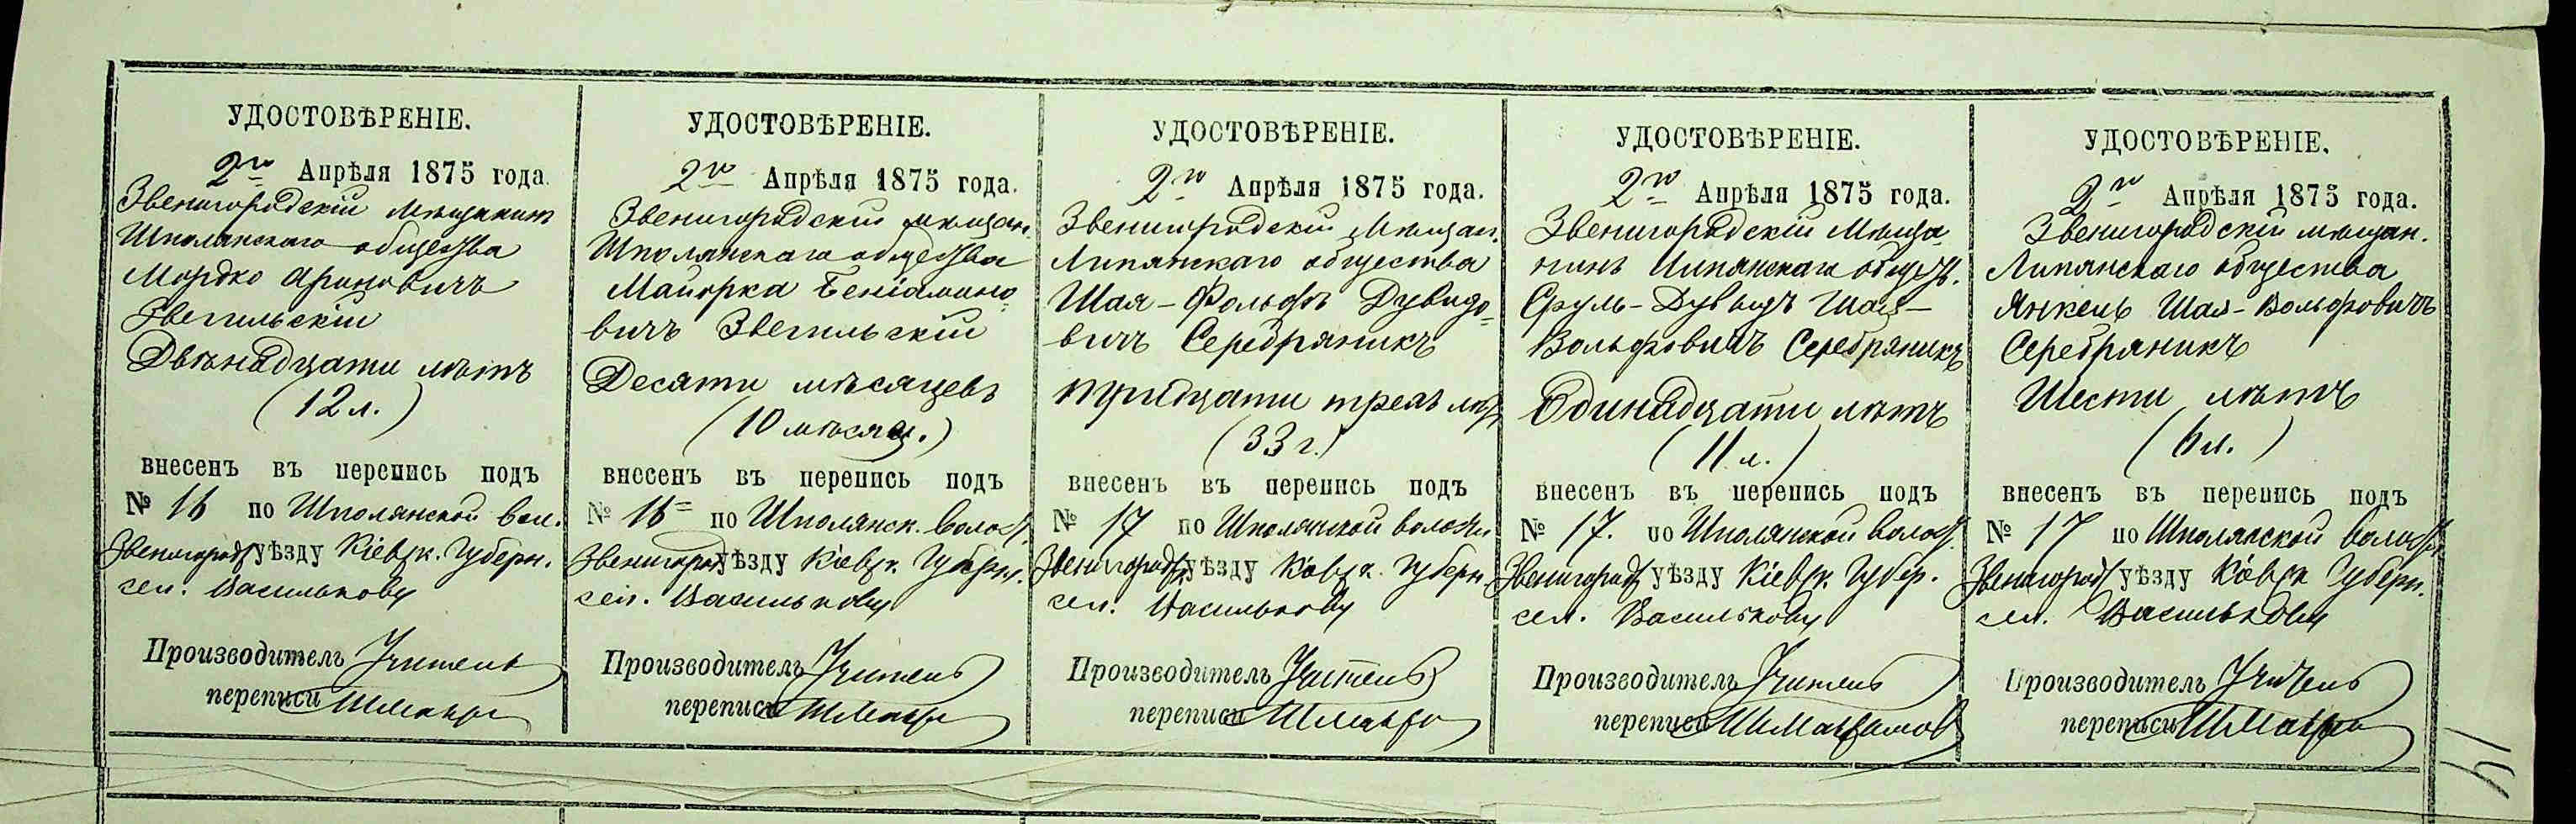 УДОСТОВѢРЕНІЕ.
2го Апрѣля 1875 года.
Звенигородскій мѣщанинъ
Шполянскаго общества
Мордко Ароновичъ
Звегильскій
Двѣнадцати лѣтъ
(12 л.)
внесенъ въ перепись подъ
№ 16 по Шполянской вол.
Звенигород уѣзду Кіевск. Губерн.
сел. Василькову
Производитель Учитель
переписи
УДОСТОВѢРЕНІЕ.
2го Апрѣля 1875 года.
Звенигородскій мѣщан.
Шполянскаго общества
Майорка Беніамино-
вичъ Звегильскій
Десяти мѣсяцевъ
(10 мѣсяц.)
внесенъ въ перепись подъ
№ 16 по Шполянск. волос.
Звенигород уѣзду Кіевск. Губерн.
сел. Василькову
Производитель Учитель
переписи
УДОСТОВѢРЕНІЕ.
2го Апрѣля 1875 года.
Звенигородскій Мѣщан.
Липянскаго общества
Шая-Фольфъ Дувидо-
вичъ Серебряникъ
тридцати трехъ лѣтъ
(33 г.)
внесенъ въ перепись подъ
№ 17 по Шполянской волости
Звенигородск уѣзду Кіевск. Губерн.
сел. Василькову
Производитель Учитель
переписи
УДОСТОВѢРЕНІЕ.
2го Апрѣля 1875 года.
Звенигородскій Мѣща-
нинъ Липянскаго общест.
Сруль-Дувыдъ Шая-
Вольфовичъ Серебряникъ
Одинадцати лѣтъ
(11 л.)
внесенъ въ перепись подъ
№ 17. по Шполянской волос.
Звенигород уѣзду Кіевск. Губер.
сел. Василькову
Производитель Учитель
переписи
УДОСТОВѢРЕНІЕ.
2го Апрѣля 1875 года.
Звенигородскій мѣщан.
Липянскаго общества
Янкель Шая-Вольфовичъ
Серебряникъ
Шести лѣтъ
(6 л.)
внесенъ въ перепись подъ
№ 17 по Шполянской волости
Звенигород уѣзду Кіевск Губерн.
сел. Василькову
Производитель Учитель
переписи